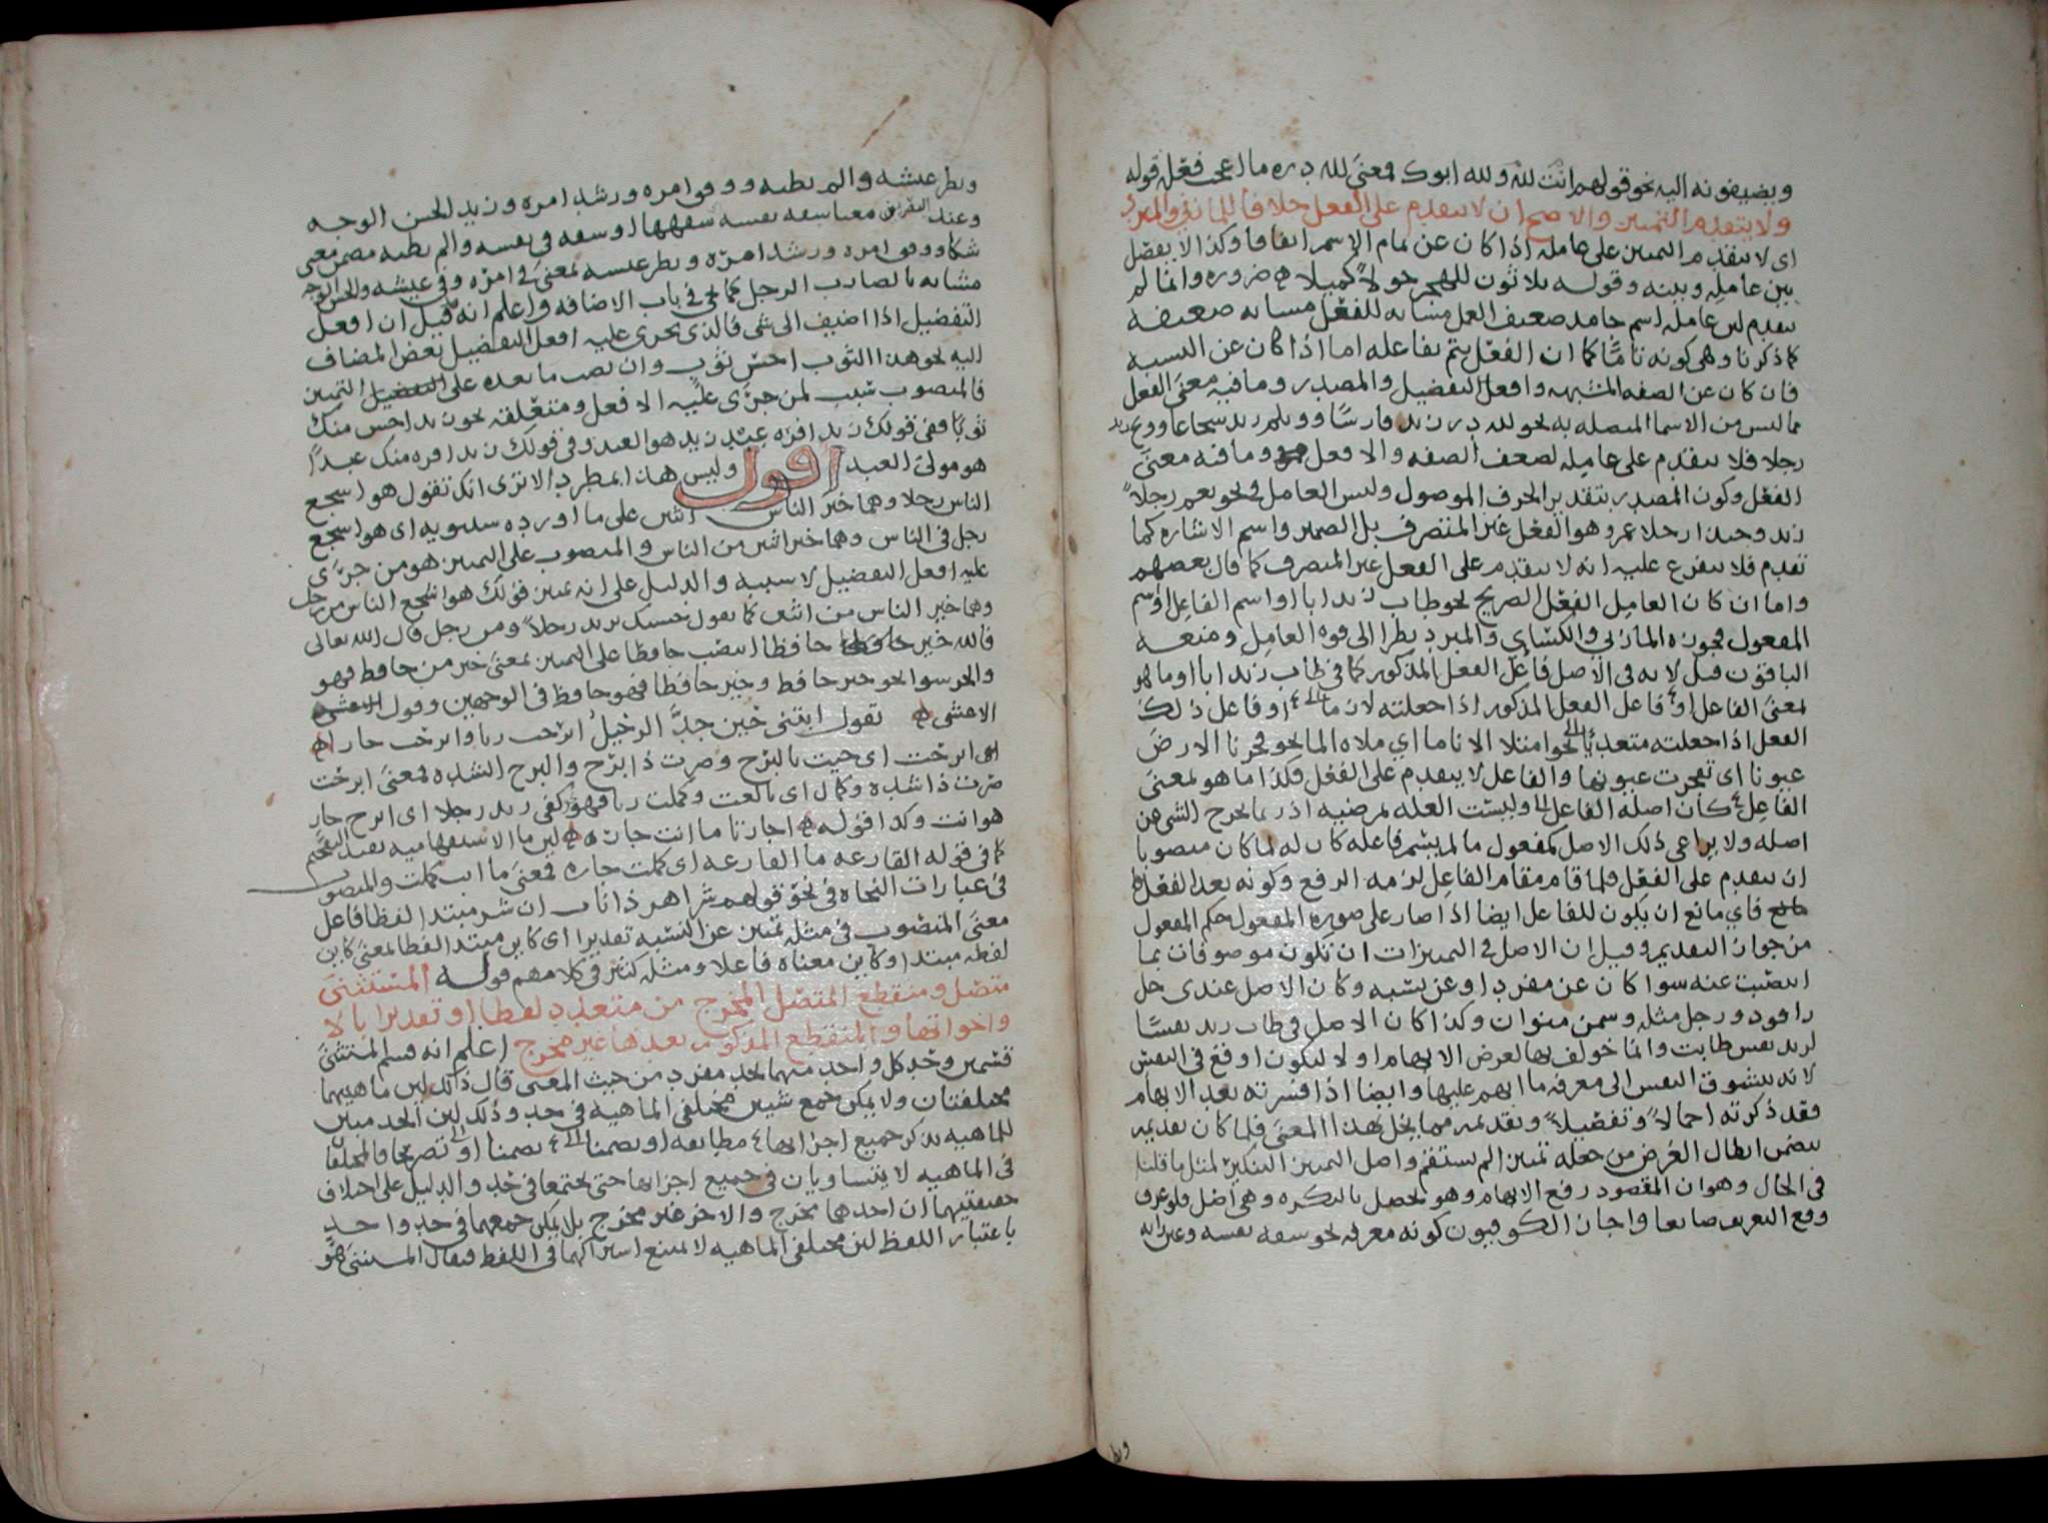 ويضيفونه اليه نحو قولهم انت لله ولله ابوك فمعنى لله دره ما اعجب فعله قوله
ولا يتقدم التمييز والاصح ان لا يتقدم على الفعل خلافا للمازني والمبرد
اى لا يتقدم التمييز على عامله اذا كان عن تمام الاسم اتفاقا وكذا لا يفصل
بين عامله وبينه وقوله ثلاثون للهجر حولا كميلا ضرورة وانما لم
يتقدم لان عامله اسم جامد ضعيف العمل مشابه للفعل مشابهة ضعيفة
كما ذكرنا وهى كونه تاما كما ان الفعل يتم بفاعله اما اذا كان عن النسبة
فان كان عن الصفه المشبهه وافعل التفضيل والمصدر وما فيه معنى الفعل
مما ليس من الاسما المتصله به نحو لله در زيد فارسا وويلم زيد شجاعا وويح زيد
رجلا فلا يتقدم على عامله لضعف الصفه والافعل وما فيه معنى
الفعل وكون المصدر بتقدير الحرف الموصول وليس العامل فى نحو نعم رجلا
زيد وحبذا رجلا عمرو هو الفعل غير المتصرف بل الضمير واسم الاشاره كما
تقدم فلا يتفرع عليه انه لا يتقدم على الفعل غير المتصرف كما قال بعضهم
واما ان كان العامل الفعل الصريح نحو طاب زيد ابا او اسم الفاعل او اسم
المفعول فجوزه المازني والكسائي والمبرد نظرا الى قوة العامل ومنعه
الباقون قيل لانه فى الاصل فاعل الفعل المذكور كما فى طاب زيد ابا او ما هو
بمعنى الفاعل او فاعل الفعل المذكور اذا جعلته لازما او فاعل ذلك
الفعل اذا جعلته متعديا نحو امتلا الانا ما اي ملاه الما نحو فجرنا الارض
عيونا اى تفجرت عيونها والفاعل لا يتقدم على الفعل فكذا ما هو بمعنى
الفاعل كان اصله الفاعل وليست العله بمرضيه اذ ربما يخرج الشى عن
اصله ولا يراعى ذلك الاصل كمفعول ما لم يسم فاعله كان له لما كان منصوبا
ان يتقدم على الفعل فلما قام مقام الفاعل لزمه الرفع وكونه بعد الفعل
فاي مانع ان يكون للفاعل ايضا اذا صار على صورة المفعول حكم المفعول
من جواز التقديم وقيل ان الاصل فى التمييزات ان تكون موصوفات بما
انتصبت عنه سوا كان عن مفرد او عن نسبه وكان الاصل عندى خل
راقود ورجل مثله وسمن منوان وكذا كان الاصل فى طاب زيد نفسا
لزيد نفس طابت وانما خولف بها لغرض الابهام اولا ليكون اوقع فى النفس
لانه تتشوق النفس الى معرفه ما ابهم عليها وايضا اذا فسرته بعد الابهام
فقد ذكرته اجمالا وتفصيلا وتقديمه مما يخل بهذا المعنى فلما كان تقديمه
يتضمن ابطال الغرض من جعله تمييزا لم يستقم واصل التمييز التنكير لمثل ما قلنا
فى الحال وهو ان المقصود رفع الابهام وهو يحصل بالنكره وهى اصل فلو عرف
وقع التعريف ضايعا واجاز الكوفيون كونه معرفه نحو سفه نفسه وغبن رايه
وبطر
وبطر عيشه والم بطنه ووفق امره ورشد امره وزيد الحسن الوجه
وعند البصريين معنا سفه نفسه سفهها او سفه فى نفسه والم بطنه مضمن معنى
شكا ووفق امره ورشد امره وبطر عيشه بمعنى فى امره وفى عيشه والحسن الوجه
مشابه بالضارب الرجل كما يجى فى باب الاضافه واعلم انه قيل ان افعل
التفضيل اذا اضيف الى شى فالذى يجرى عليه افعل التفضيل بعض المضاف
اليه نحو هذا الثوب احسن ثوب وان نصب ما بعده على التمييز
فالمنصوب سبب لمن جرى عليه الافعل ومتعلقه نحو زيد احسن منك
ثوبا ففى قولك زيد افره عبد زيد هو العبد وفى قولك زيد افره منك عبدا
هو مولى العبد اقول وليس هذا بمطرد الا ترى انك تقول هو اشجع
الناس رجلا وهما خير الناس اثنين على ما اورده سيبويه اى هو اشجع
رجل فى الناس وهما خير اثنين من الناس والمنصوب على التمييز هو من جرى
عليه افعل التفضيل لا سببه والدليل على انه تمييز قولك هو اشجع الناس من رجل
وهما خير الناس من اثنين كما تقول حسبك بزيد رجلا ومن رجل قال الله تعالى
فالله خير حافظا انتصب حافظا على التمييز بمعنى خير من حافظ فهو
والجر سوا نحو خير حافظ وخير حافظا فهو حافظ فى الوجهين وقول
الاعشى تقول ابنتى حين جد الرحيل ابرحت ربا وابرحت جارا
اى ابرحت اى جيت بالبرح وصرت ذا برح والبرح الشده فمعنى ابرحت
صرت ذا شده وكمال اى بالغت وكملت ربا فهو كفى زيد رجلا اى ابرح جار
هو انت وكذا قوله يا جارتا ما انت جاره لان ما الاستفهاميه تفيد التفخيم
كما فى قوله القارعه ما القارعه اى كملت جاره فمعنى ما انت كملت والمنصوب
فى عبارات النحاه فى نحو قولهم شر اهر ذا ناب ان شر مبتدا لفظا فاعل
معنى المنصوب فى مثله تمييز عن النسبه تقديرا اى كاين مبتدا لفظا بمعنى كاين
لفظه مبتدا وكاين معناه فاعلا ومثله كثير فى كلامهم قوله المستثنى
متصل ومنقطع المتصل المخرج من متعدد لفظا او تقديرا بالا
واخواتها والمنقطع المذكور بعدها غير مخرج اعلم انه قسم المستثنى
قسمين وحد كل واحد منهما بحد مفرد من حيث المعنى قال ذلك لان ماهيتهما
مختلفتان ولا يمكن جمع شيين مختلفى الماهيه فى حد وذلك لان الحد مبين
للماهيه بذكر جميع اجزائها مطابقه او تضمنا او تصريحا فالمختلفان
فى الماهيه لا يتساويان فى جميع اجزايها حتى يجتمعا فى حد والدليل على اختلاف
حقيقتيهما ان احدهما مخرج والاخر غير مخرج بلا يمكن جمعهما فى حد واحد
باعتبار اللفظ لان مختلفى الماهيه لا يمتنع اشتراكهما فى اللفظ فيقال المستثنى هو